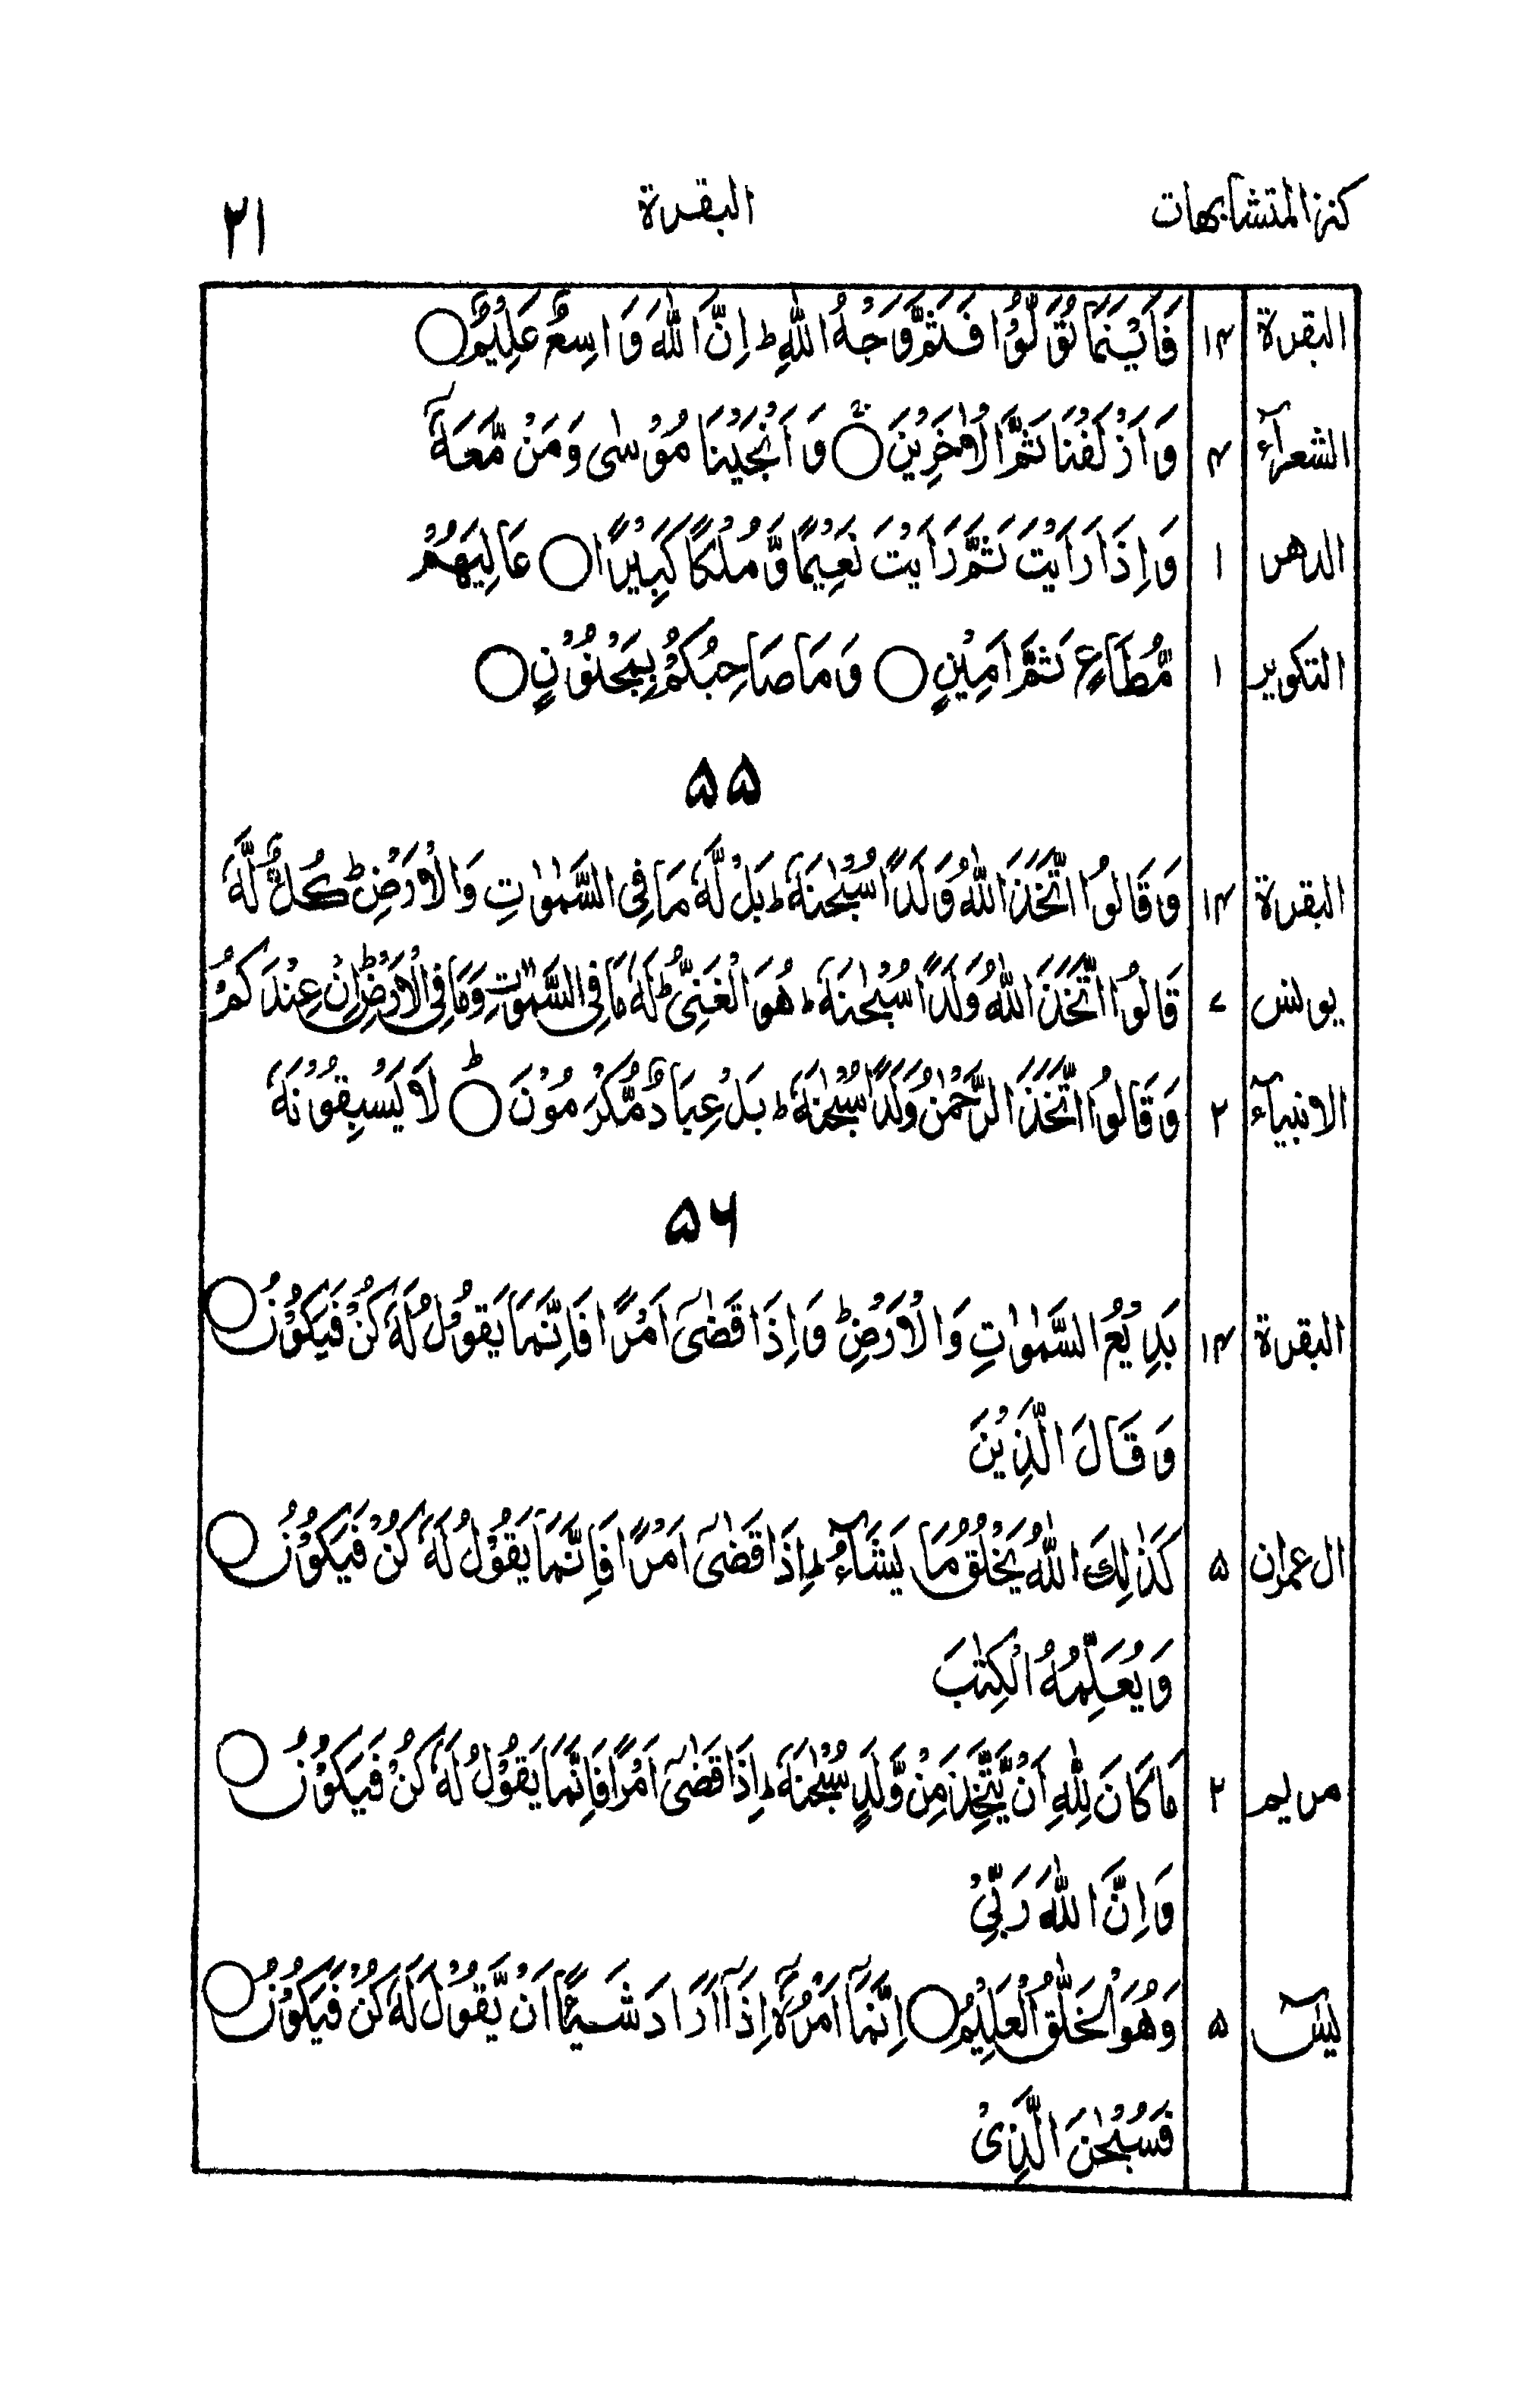 كنز المتشابهات البقرة ٢١
البقرة ١٤ فَاَيْنَمَا تُوَلُّوْا فَثَمَّ وَجْهُ اللّٰهِ ؕ اِنَّ اللّٰهَ وَاسِعٌ عَلِيْمٌ ○
الشعرآء ۴ وَ اَزْلَفْنَا ثَمَّ الْاٰخَرِيْنَ ○ وَ اَنْجَيْنَا مُوْسٰى وَ مَنْ مَّعَهٗۤ
الدهر ١ وَ اِذَا رَاَيْتَ ثَمَّ رَاَيْتَ نَعِيْمًا وَّ مُلْكًا كَبِيْرًا ○ عَالِيَهُمْ
التكوير ١ مُّطَاعٍ ثَمَّ اَمِيْنٍ ○ وَ مَا صَاحِبُكُمْ بِمَجْنُوْنٍ ○
۵۵
البقرة ١۴ وَ قَالُوا اتَّخَذَ اللّٰهُ وَلَدًا سُبْحٰنَهٗ ؕ بَلْ لَّهٗ مَا فِى السَّمٰوٰتِ وَ الْاَرْضِ ؕ كُلٌّ لَّهٗ
يونس ٧ قَالُوا اتَّخَذَ اللّٰهُ وَلَدًا سُبْحٰنَهٗ ؕ هُوَ الْغَنِىُّ ؕ لَهٗ مَا فِى السَّمٰوٰتِ وَ مَا فِى الْاَرْضِ ؕ اِنْ عِنْدَكُمْ
الانبيآء ٢ وَ قَالُوا اتَّخَذَ الرَّحْمٰنُ وَلَدًا سُبْحٰنَهٗ ؕ بَلْ عِبَادٌ مُّكْرَمُوْنَ ○ؕ لَا يَسْبِقُوْنَهٗ
۵۶
البقرة ١۴ بَدِيْعُ السَّمٰوٰتِ وَ الْاَرْضِ ؕ وَ اِذَا قَضٰۤى اَمْرًا فَاِنَّمَا يَقُوْلُ لَهٗ كُنْ فَيَكُوْنُ ○
وَ قَالَ الَّذِيْنَ
ال عمران ۵ كَذٰلِكَ اللّٰهُ يَخْلُقُ مَا يَشَآءُ ؕ اِذَا قَضٰۤى اَمْرًا فَاِنَّمَا يَقُوْلُ لَهٗ كُنْ فَيَكُوْنُ ○
وَ يُعَلِّمُهُ الْكِتٰبَ
مريم ٢ مَا كَانَ لِلّٰهِ اَنْ يَّتَّخِذَ مِنْ وَّلَدٍ سُبْحٰنَهٗ ؕ اِذَا قَضٰۤى اَمْرًا فَاِنَّمَا يَقُوْلُ لَهٗ كُنْ فَيَكُوْنُ ○
وَ اِنَّ اللّٰهَ رَبِّىْ
يٰسٓ ۵ وَ هُوَ الْخَلّٰقُ الْعَلِيْمُ ○ اِنَّمَاۤ اَمْرُهٗۤ اِذَاۤ اَرَادَ شَيْـًٔا اَنْ يَّقُوْلَ لَهٗ كُنْ فَيَكُوْنُ ○
فَسُبْحٰنَ الَّذِىْ